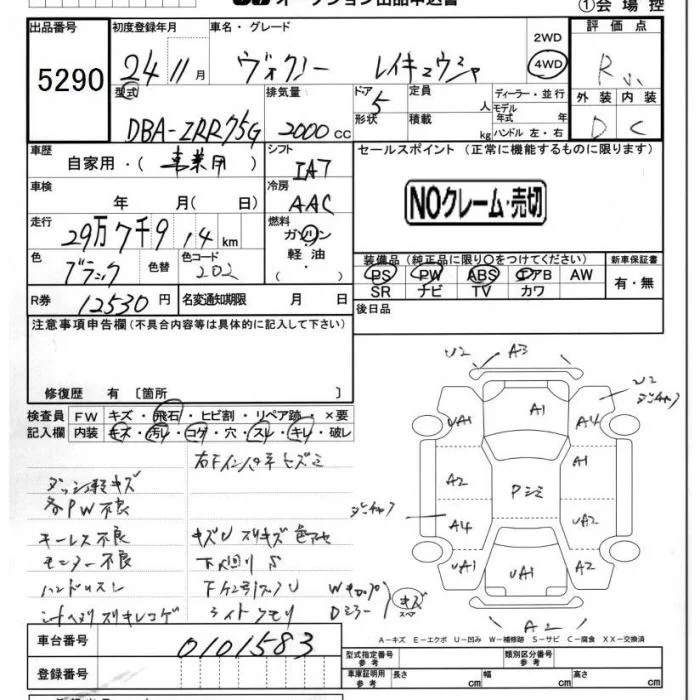 オークション出品申込書
①会場控
出品番号
5290
初度登録年月
24 11月
車名・グレード
ヴォクシー
2WD
4WD
評価点
R
型式
DBA-ZRR75G
排気量
2000 cc
ドア 5
形状
定員 人
積載 kg
ディーラー・並行
モデル年式 年
ハンドル 左・右
外装 内装
D C
車歴
自家用・(事業用)
シフト
IA7
セールスポイント (正常に機能するものに限ります)
車検
年 月( 日)
冷房
AAC
NOクレーム・売切
走行
29万7千9 14 km
燃料
ガソリン
軽油
( )
色
ブラック
色替
色コード
202
装備品 (純正品に限り○をつけてください)
PS PW ABS エアB AW
SR ナビ TV カワ
新車保証書
有・無
R券
12530 円
名変通知期限 月 日
後日品
注意事項申告欄(不具合内容等は具体的に記入して下さい)
修復歴 有 〔箇所 〕
検査員記入欄
FW キズ・飛石・ヒビ割・リペア跡・×要
内装 キズ・汚レ・コゲ・穴・スレ・キレ・破レ
右Fインパネヒズミ
ダッシュ軽キズ
各PW不良
キーレス不良
モニター不良
ハンドルスレ
シートヘタリスリキレコゲ
キズU スリキズ色アセ
下廻りS
ライトクモリ
Dミラー
キズ
スペア
U2 A3
U2
UA1 A1 A4
A1
A2 Pシミ UA2
A4
UA1 UA1 A2
A2
A-キズ E-エクボ U-凹み W-補修跡 S-サビ C-腐食 XX-交換済
車台番号
0101583
登録番号
型式指定番号 参考
類別区分番号 参考
車庫証明用 参考
長さ cm
幅 cm
高さ cm